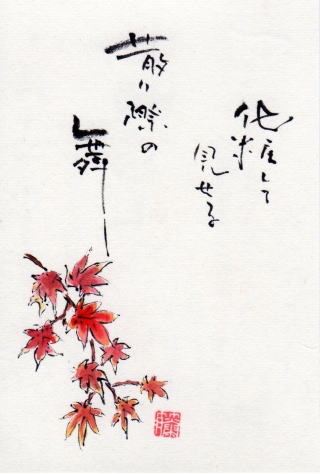 化粧して
見せる
散り際の
舞